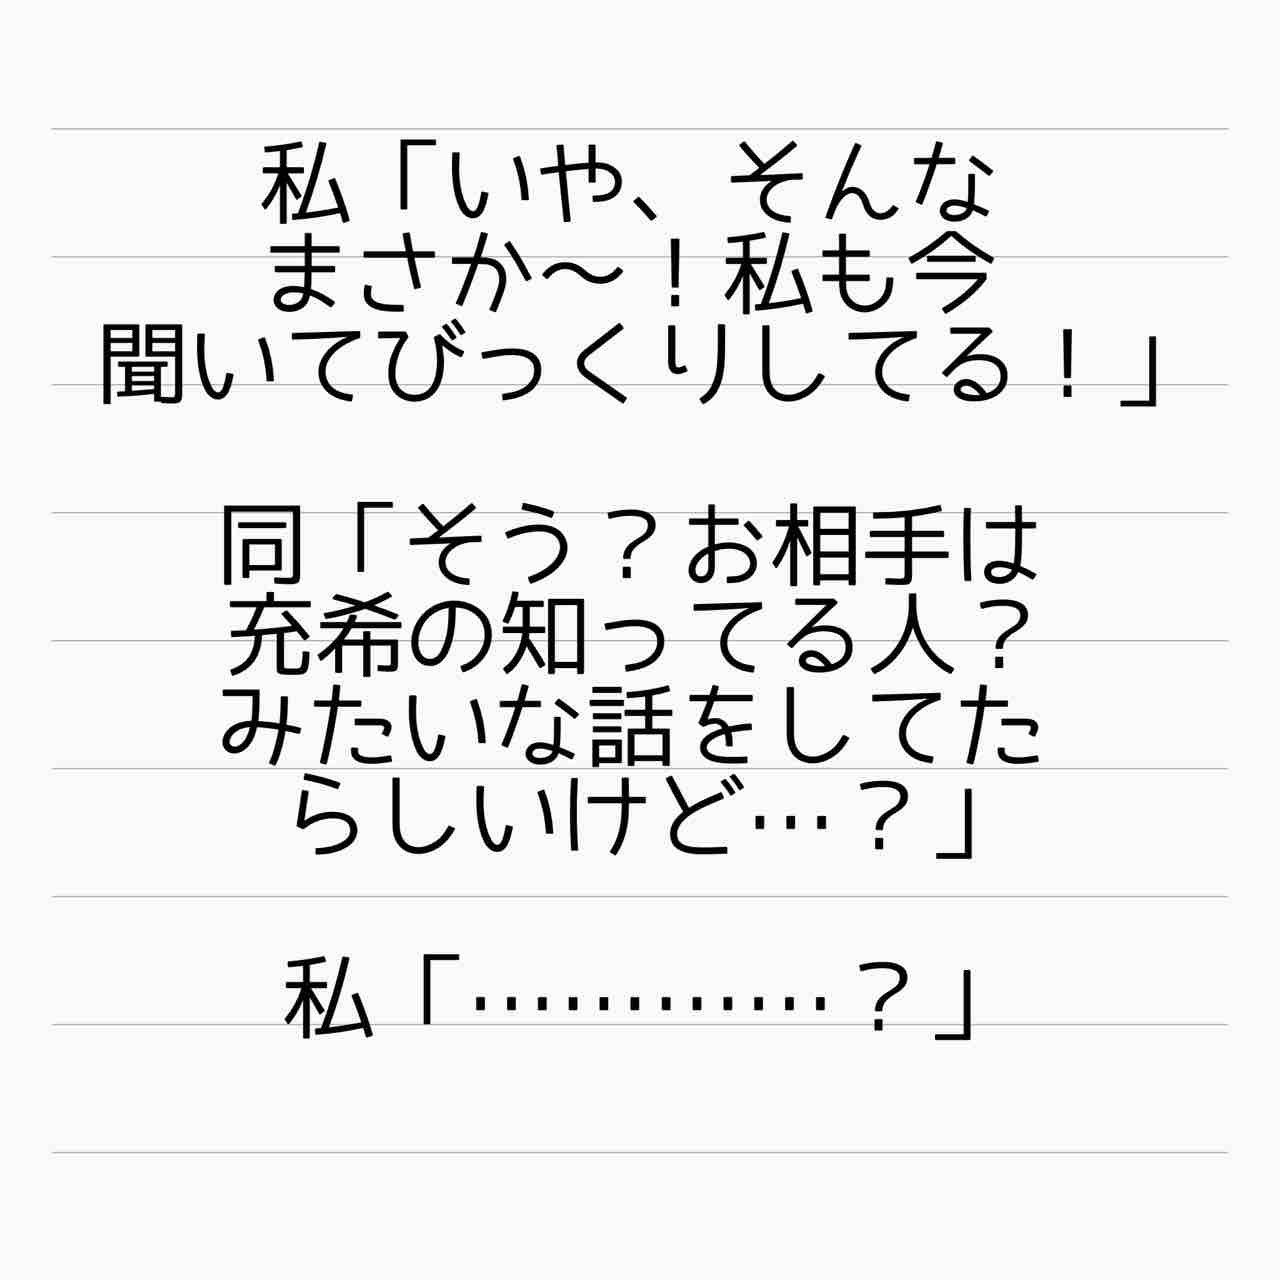 私「いや、そんな
まさか〜！私も今
聞いてびっくりしてる！」
同「そう？お相手は
充希の知ってる人？
みたいな話をしてた
らしいけど…？」
私「…………？」